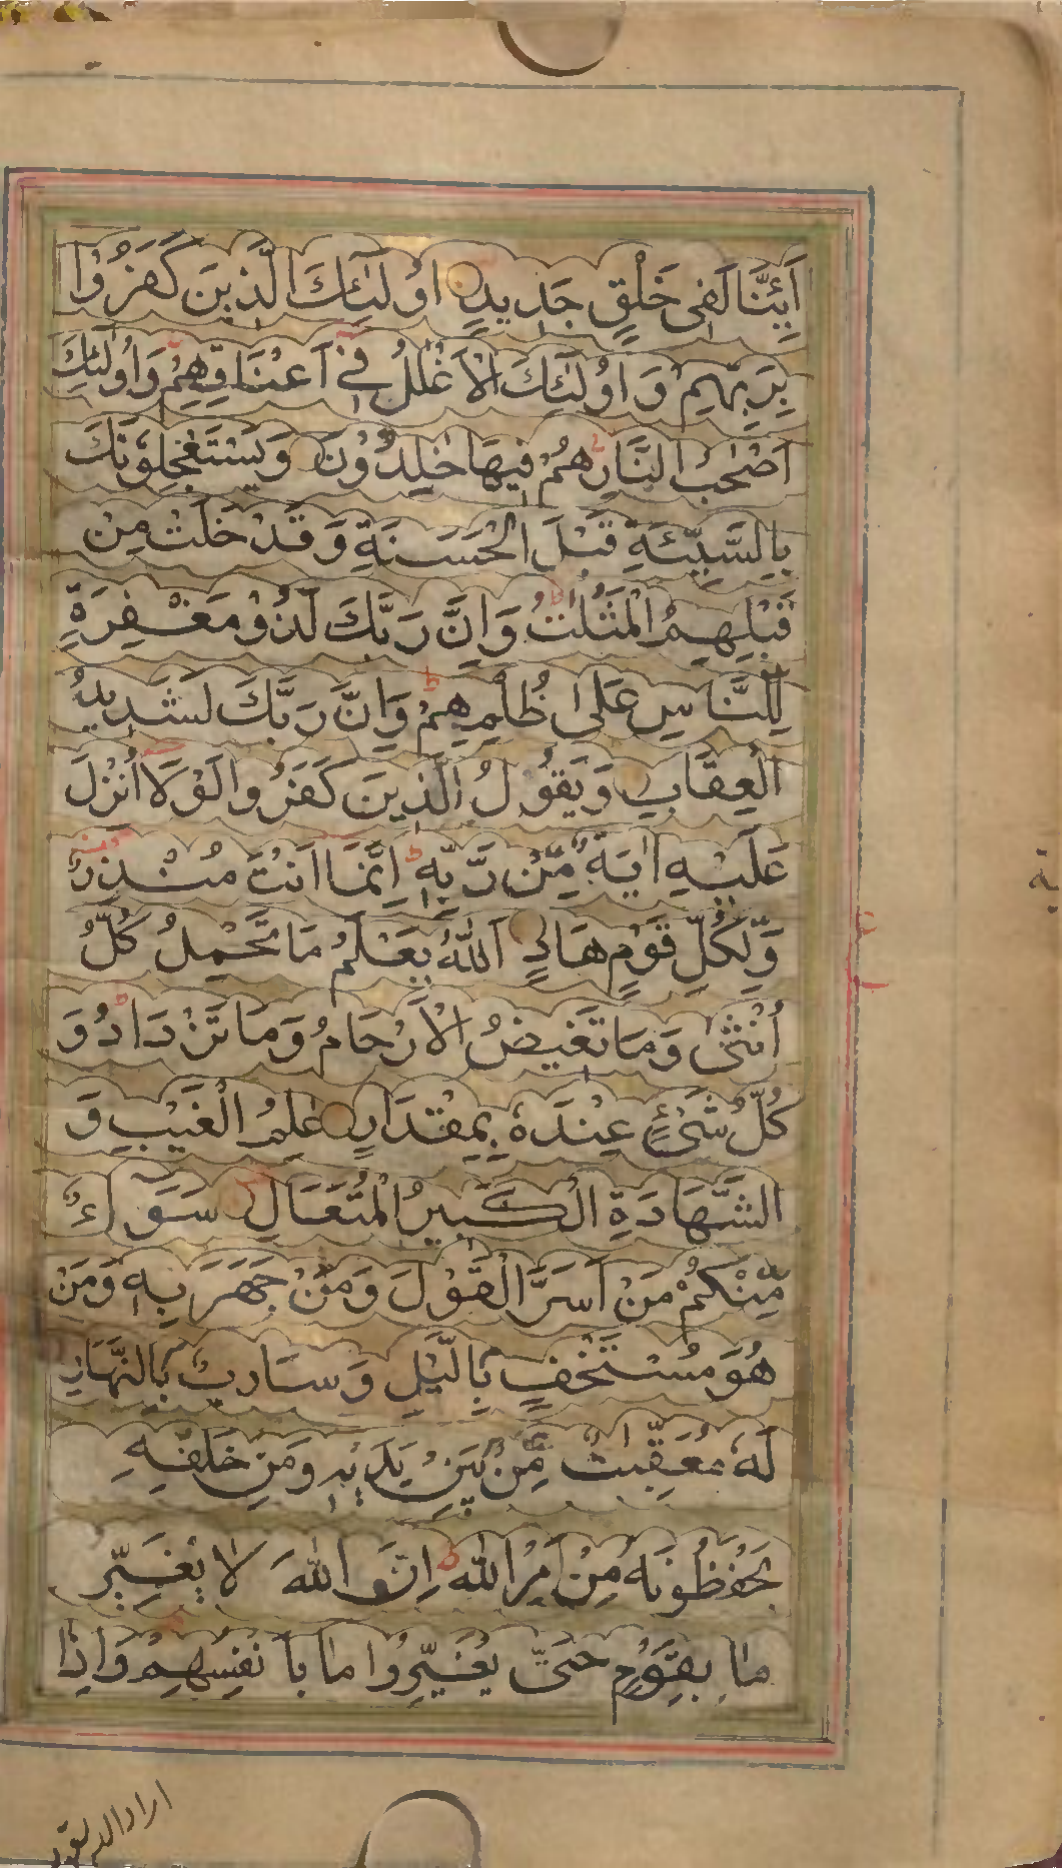 ءَاِنَّا لَفِی خَلْقٍ جَدِیدٍ اُولٰٓئِكَ الَّذِینَ كَفَرُوْا
بِرَبِّهِمْ وَاُولٰٓئِكَ الْاَغْلٰلُ فِیْٓ اَعْنَاقِهِمْ وَاُولٰٓئِكَ
اَصْحٰبُ النَّارِ هُمْ فِیهَا خٰلِدُوْنَ وَیَسْتَعْجِلُوْنَكَ
بِالسَّیِّئَةِ قَبْلَ الْحَسَنَةِ وَقَدْ خَلَتْ مِنْ
قَبْلِهِمُ الْمَثُلٰتُ وَاِنَّ رَبَّكَ لَذُوْ مَغْفِرَةٍ
لِّلنَّاسِ عَلٰی ظُلْمِهِمْ وَاِنَّ رَبَّكَ لَشَدِیدُ
الْعِقَابِ وَیَقُوْلُ الَّذِینَ كَفَرُوا لَوْلَآ اُنْزِلَ
عَلَیْهِ اٰیَةٌ مِّنْ رَّبِّهٖ اِنَّمَآ اَنْتَ مُنْذِرٌ
وَّلِكُلِّ قَوْمٍ هَادٍ اَللّٰهُ یَعْلَمُ مَا تَحْمِلُ كُلُّ
اُنْثٰی وَمَا تَغِیضُ الْاَرْحَامُ وَمَا تَزْدَادُ وَ
كُلُّ شَیْءٍ عِنْدَهٗ بِمِقْدَارٍ عٰلِمُ الْغَیْبِ وَ
الشَّهَادَةِ الْكَبِیرُ الْمُتَعَالِ سَوَآءٌ
مِّنْكُمْ مَنْ اَسَرَّ الْقَوْلَ وَمَنْ جَهَرَ بِهٖ وَمَنْ
هُوَ مُسْتَخْفٍ بِالَّیْلِ وَسَارِبٌ بِالنَّهَارِ
لَهٗ مُعَقِّبٰتٌ مِّنْ بَیْنِ یَدَیْهِ وَمِنْ خَلْفِهٖ
یَحْفَظُونَهٗ مِنْ اَمْرِ اللّٰهِ اِنَّ اللّٰهَ لَا یُغَیِّرُ
مَا بِقَوْمٍ حَتّٰی یُغَیِّرُوا مَا بِاَنْفُسِهِمْ وَاِذَا
اراد الله بقو